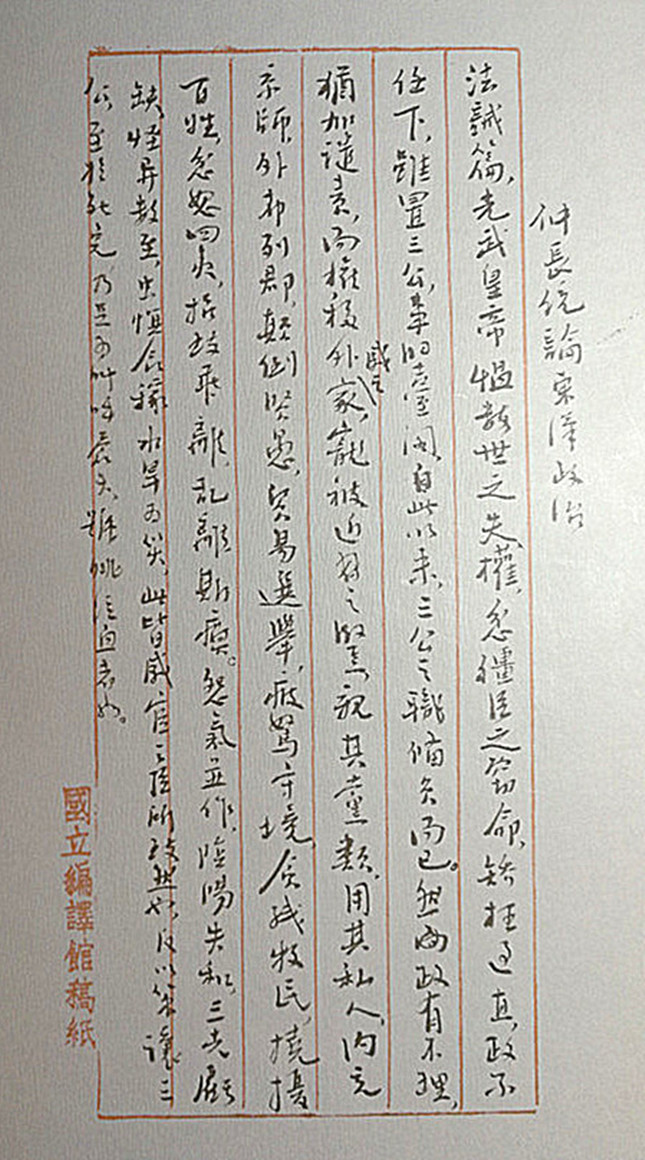 仲長統論東漢政治
法誡篇，光武皇帝愠數世之失權，忿彊臣之竊命，矯枉过直，政不
任下，雖置三公，事归臺阁。自此以来，三公之職，備负而已。然而政有不理，
猶加譴责，而權移外戚之家，寵被近習之竪，親其黨類，用其私人，内充
京師，外布列郡，颠倒贤愚，贸易選舉，疲駑守境，贪残牧民，撓擾
百姓，忿怒四夷，招致乖離，乱離斯瘼。怨氣並作，陰陽失和，三光虧
缺，怪异数至，虫惧食稼，水旱为災，此皆戚宦之臣所致然也，反以策讓三
公，至於死免，乃足为叫呼苍天，號咷泣血者也。
國立編譯館稿紙